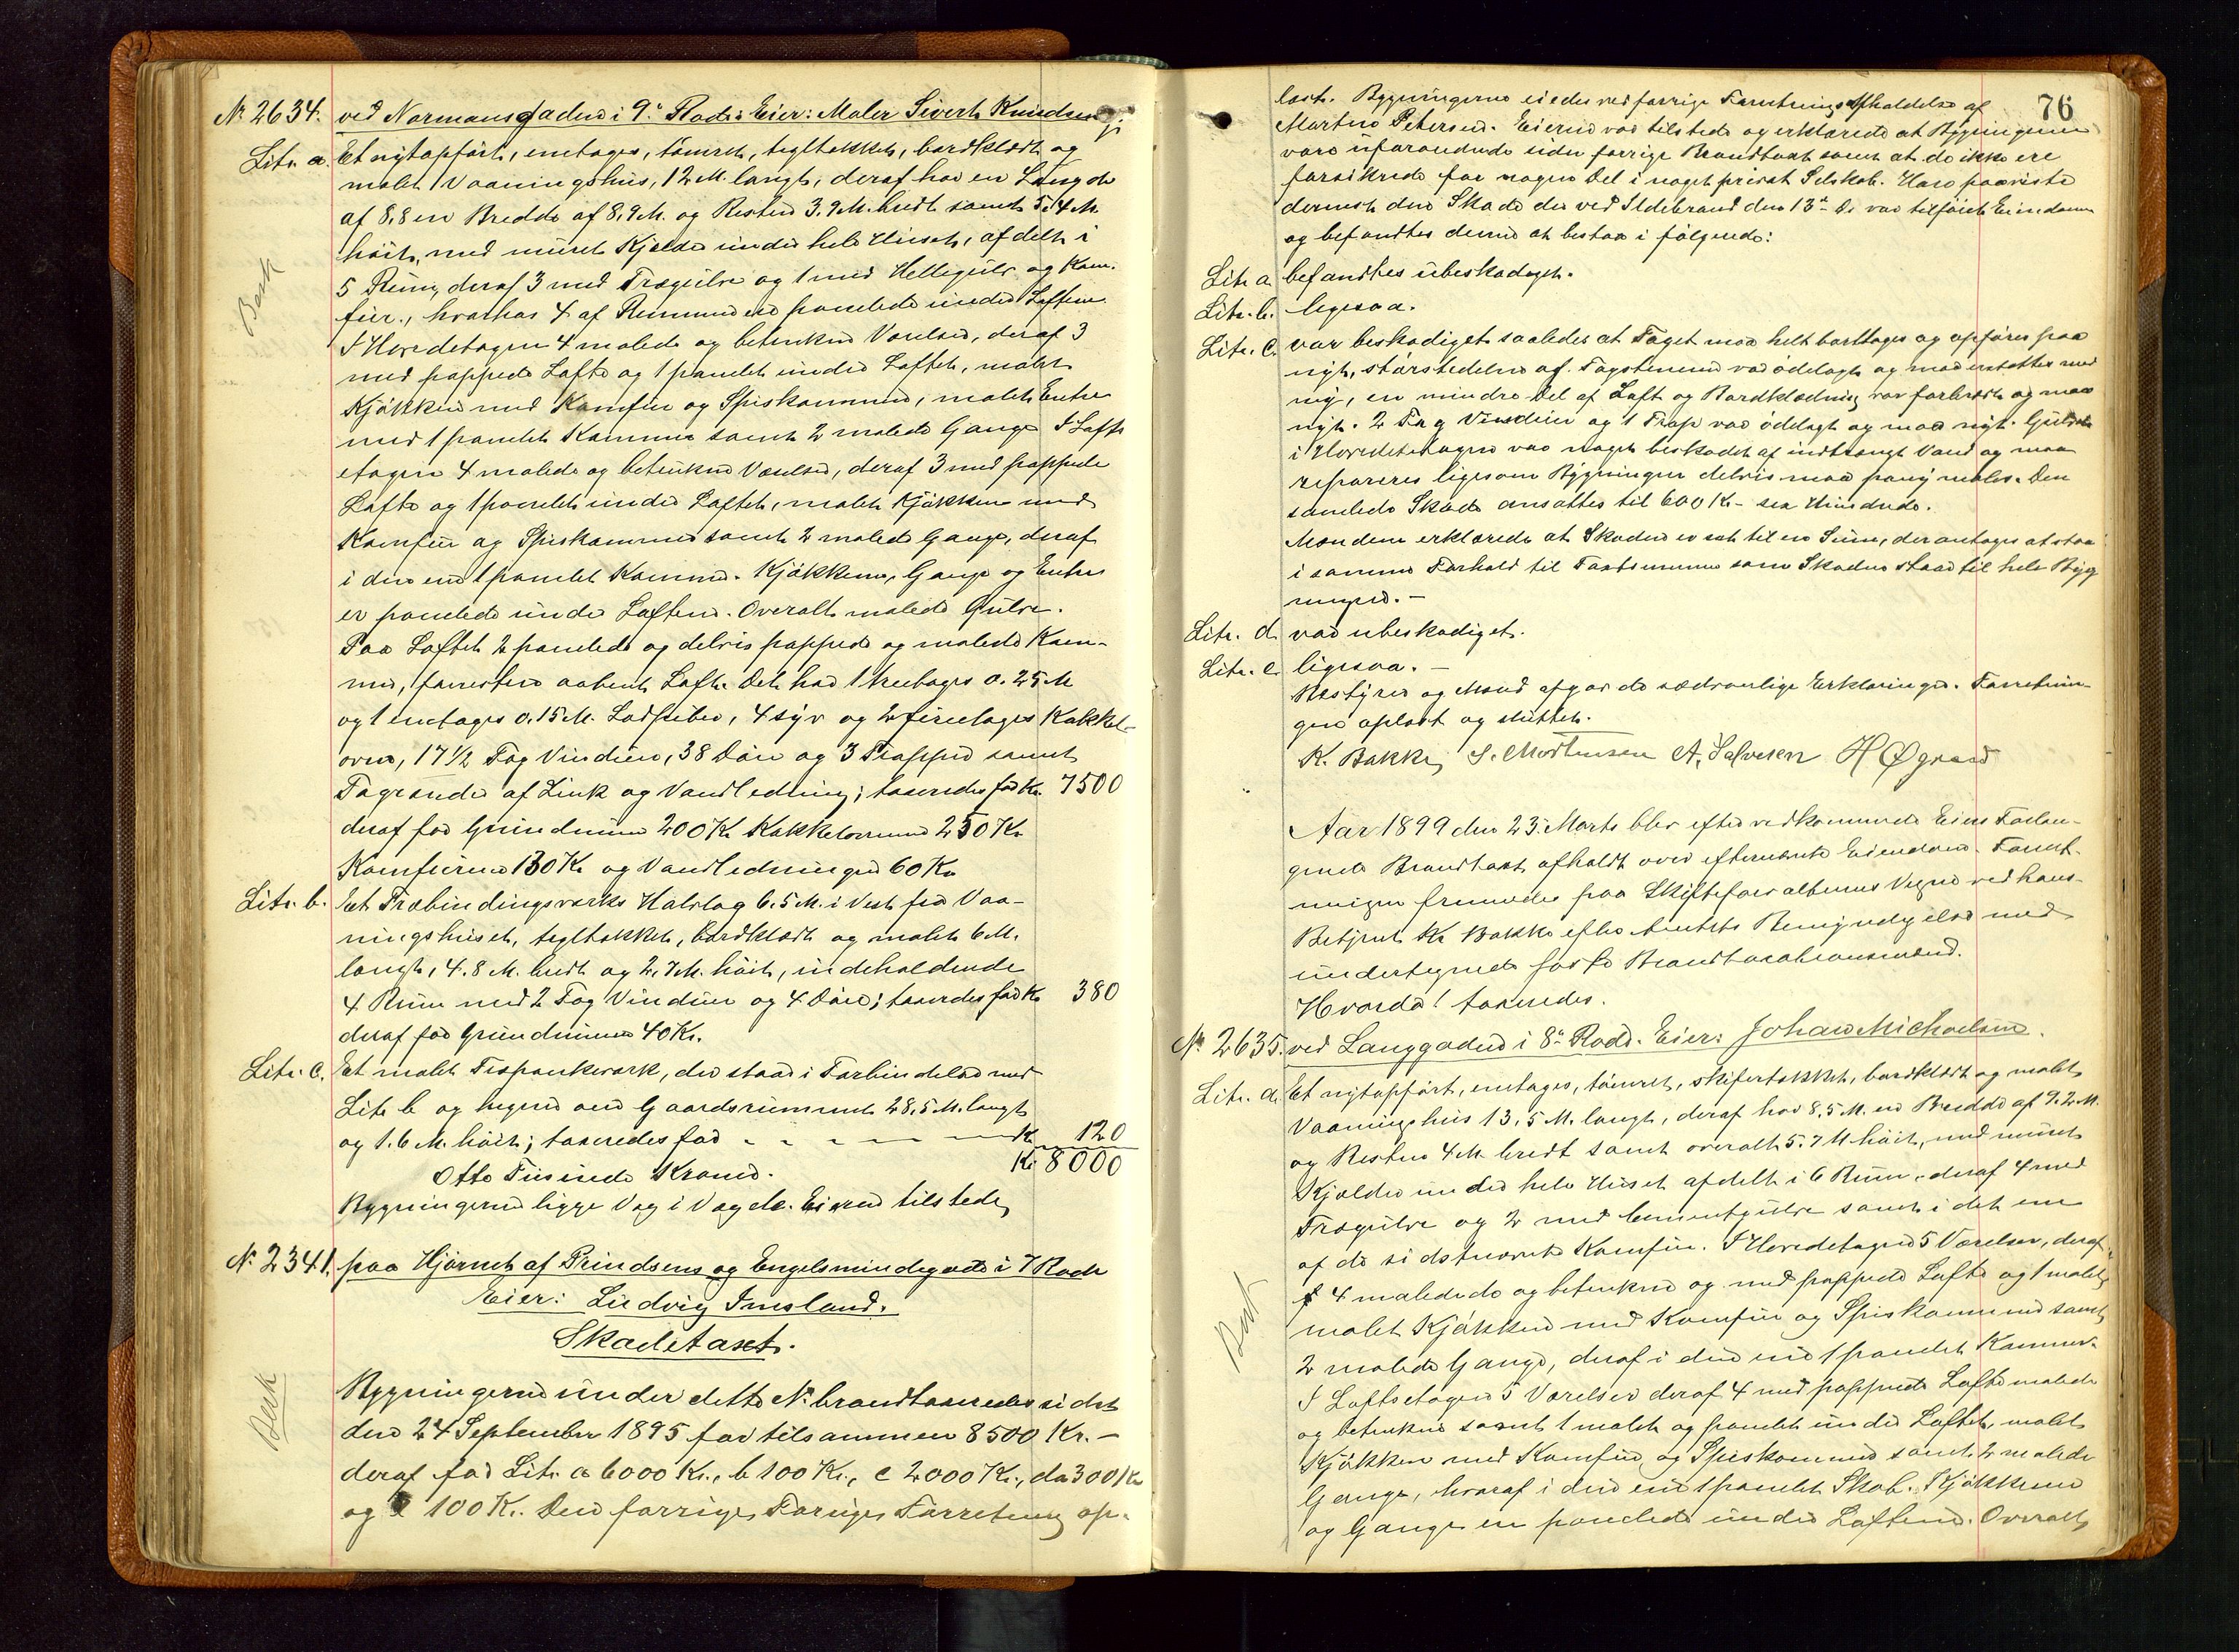 No 2634. ved Normansgaden i 9de Rode: Eier: Maler Sivert Knudsen
Litr. a. Et nytopført, enetages, tømret, tegltækket, bordklædt og
malet Vaaningshus, 12 M. langt, deraf har en Længde
af 8,8 en Bredde af 8,9 M. og Resten 3,9 M. bredt samt 5,4 M
høit, med muret Kjælder under hele Huset, afdelt i
5 Rum, deraf 3 med Trægulve og 1 med Hellegulv og Kom-
fur, hvorhos 4 af Rummene er panelede under Loftene
I Hovedetagen 4 malede og betrukne Værelser, deraf 3
med pappede Lofte og 1 panelet under Loftet, malet
Kjøkken med Komfur og Spiskammer, malet Entre
med 1 panelet Kammer samt 2 malede Gange I Lofts
etagen 4 malede og betrukne Værelser, deraf 3 med pappede
Lofte og 1 panelet under Loftet, malet Kjøkken med
Komfur og Spiskammer samt 2 malede Gange, deraf
i den ene 1 panelet Kammer. Kjøkkener, Gange og Entre
er panelede under Loftene. Overalt malede Gulve.
Paa Loftet 2 panelede og delvis pappede og malede Kam-
mer, forresten aabent Loft. Det har 1 treetages a. 25 M
og 1 enetages a. 15 M. Lodpiber, 4 syv og 2 fireetages Kakkel-
ovne, 17 1/2 Fag Vinduer, 38 Døre og 3 Trapper samt
Tagrender af Zink og Vandledning; taxeredes for Kr. 7500
deraf for Grundmure 200 Kr Kakkelovnene 250 Kr
Komfurene 130 Kr og Vandledningen 60 Kr
Litr. b. Et Træbindingsværks Halvtag 6.5 M. i Vest fra Vaa-
ningshuset, tegltækket, bordklædt og malet 6 M.
langt, 4.8 M. bredt og 2.7 M. høit, indeholdende
4 Rum med 2 Fag Vinduer og 4 Døre; taxeredes for Kr 380
deraf for Grundmuren 40 Kr.
Litr. c. Et malet Træplankeværk, der staar i Forbindelse med
Litr b og hegner om Gaardsrummet 28,5 M. langt
og 1.6 M. høit; taxeredes for Kr. 120
Otte Tusinde Kroner. Kr 8000
Bygningerne ligge Væg i Væg etc. Eieren tilstede
No 2341. paa Hjørnet af Prindsens og Engelsmindegade i 7 Rode
Eier: Ludvig Imsland.
Skadetaxt.
Bygningerne under dette No brandtaxeredes sidst
den 24 September 1895 for tilsammen 8500 Kr. —
deraf for Litr. a 6000 Kr., b 100 Kr., c 2000 Kr., d 300 Kr
og e 100 Kr. Den forrige Forretning op-
76
læst. Bygningerne eiedes ved forrige Forretnings Afholdelse af
Martin Petersen. Eieren var tilstede og erklærede at Bygningerne
vare uforandrede siden forrige Brandtaxt samt at de ikke ere
forsikrede for nogen Del i noget privat Selskab. Han paaviste
dernæst den Skade der ved Ildebrand den 13de ds var tilføiet Eiendommen
og befandtes denne at bestaa i følgende:
Litr a befandtes ubeskadiget.
Litr. b. ligesaa.
Litr. c. var beskadiget saaledes at Taget maa helt borttages og opføres paa
nyt, størstedelen af Tagstenene var ødelagt og maa erstattes med
ny, en mindre Del af Loft og Bordklædning var forbrændt og maa
nyt. 2 Fag Vinduer og 1 Trap var ødelagt og maa nyt. Gulvet
i Hovedetagen var noget beskadet af indtrængt Vand og maa
repareres ligesom Bygningen delvis maa paany males. Den
samlede Skade ansattes til 600 Kr — sex Hundrede.
Mændene erklærede at Skaden er sat til en Sum, der antages at staa
i samme Forhold til Taxtsummen som Skaden staar til hele Byg
ningen. —
Litr. d var ubeskadiget.
Litr. e ligesaa. —
Bestyrer og Mænd afgav de sædvanlige Erklæringer. Forretnin-
gen oplæst og sluttet.
K. Bakke S. Mortensen A. Salvesen H Øgreid
Aar 1899 den 23. Marts blev efter vedkommende Eiers Forlan-
gende Brandtaxt afholdt over efternævnte Eiendom. Forret-
ningen fremmedes paa Skifteforvalterens Vegne ved hans
Betjent K. Bakke efter Amtets Bemyndigelse med
undertegnede faste Brandtaxationsmænd.
Hvorda! taxeredes.
No 2635. ved Langgaden i 8de Rode. Eier: Johan Michaelsen.
Litr. a. Et nytopført, enetages, tømret, skifertækket, bordklædt og malet
Vaaningshus 13,5 M. langt, deraf har 8,5 M. en Bredde af 9.2 M.
og Resten 4 M bredt samt overalt 5.7 M høit, med muret
Kjælder under hele Huset afdelt i 6 Rum, deraf 4 med
Trægulve og 2 med Cementgulve samt i det ene
af de sidstnævnte Komfur. I Hovedetagen 5 Værelser, deraf
4 malede og betrukne og med pappede Lofte og 1 malet,
malet Kjøkken med Komfur og Spiskammer samt
2 malede Gange, deraf i den ene 1 panelet Kammer.
I Loftsetagen 5 Værelser deraf 4 med pappede Lofte malede
og betrukne samt 1 malet og panelet under Loftet, malet
Kjøkken med Komfur og Spiskammer samt 2 malede
Gange, hvoraf i den ene 1 panelet Skab. Kjøkkene
og Gange er panelede under Loftene. Overalt